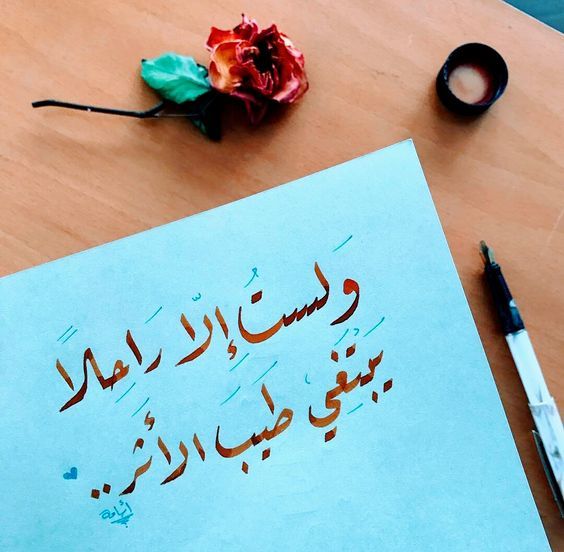 وَلَستُ إِلّا رَاحِلًا
يَبتَغِي طِيبَ الأَثَر..